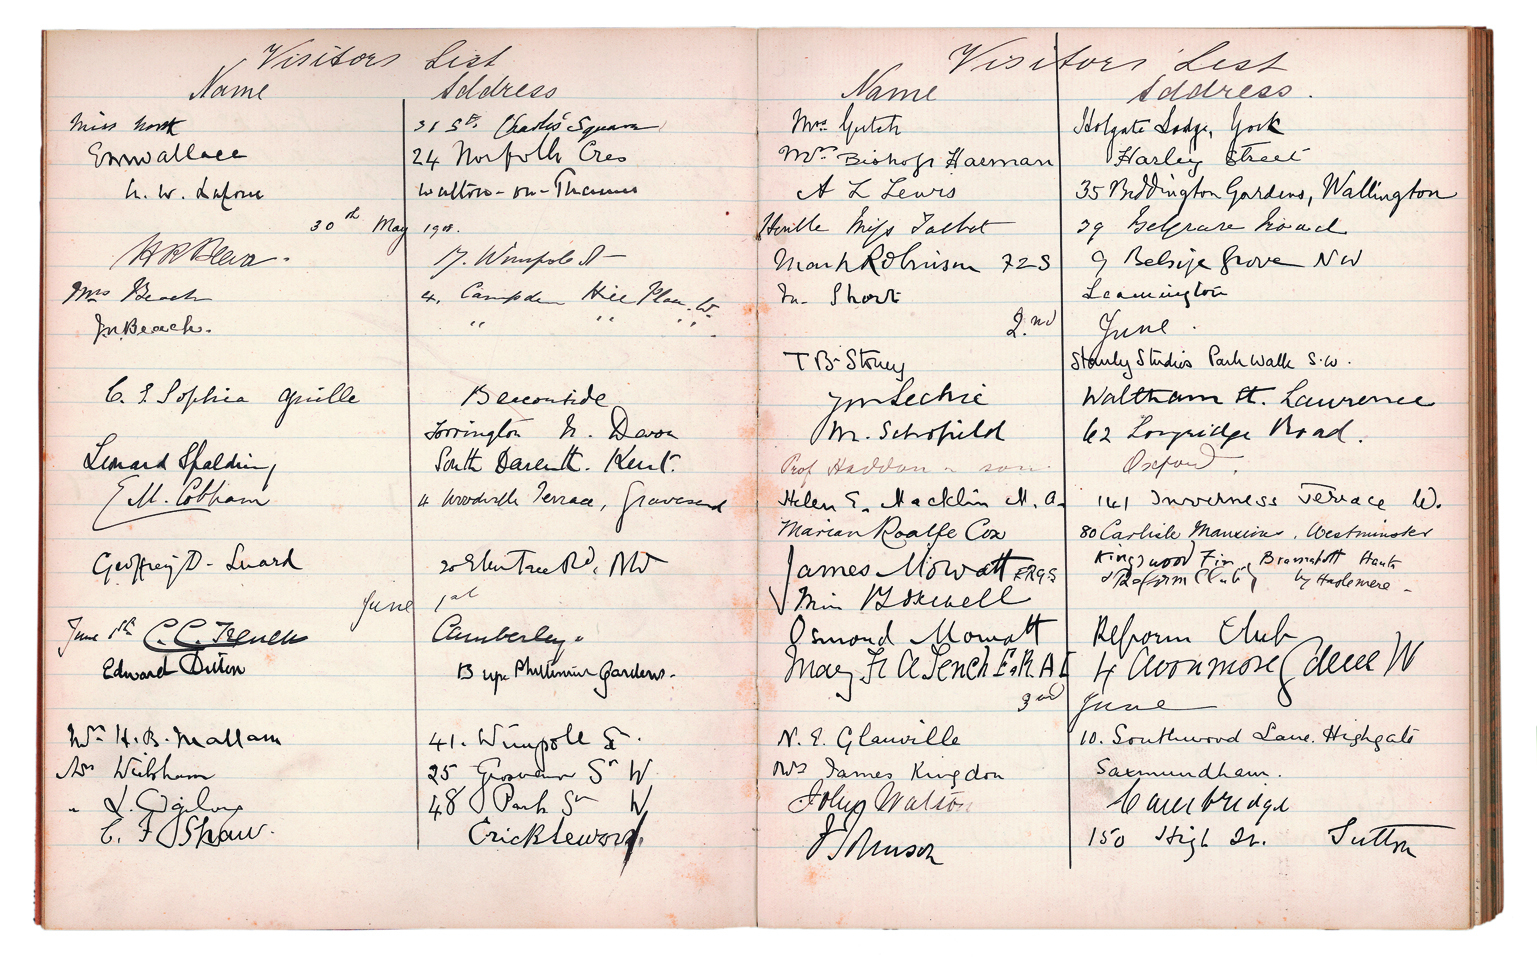 Visitors List
Name Address
Miss North 31 St. Charles' Square
Emwallace 24 Norfolk Cres
Walton-on-Thames
30th May
17. Wimpole St
Mrs Beach 4, Campden Hill Place. W.
Jn. Beach. " " " "
C. E. Sophia Grille Beaconside
Torrington N. Devon
Leonard Spalding South Darenth. Kent.
E M. Cobham 4 Woodville Terrace, Gravesend
Geoffrey D. Luard 20 Elm Tree Rd, NW
June 1st
June 1st C. C. French Camberley.
Edward Ditton 13 upr Phillimore Gardens.
Mrs H. B. Mallam 41. Wimpole St.
Mrs 25 Grosvenor Sq W.
" 48 Park St W
C. F. Shaw. Ericksword
Visitors List
Name Address.
Mrs Gutch Holgate Lodge, York
Mrs Bishop Harman Harley Street
A L Lewis 35 Beddington Gardens, Wallington
Miss Talbot 39 Belgrave Road
Mark Robinson 72S 9 Belsize Grove NW
Short Leamington
2nd June.
T B Stoney Stanley Studios Park Walk S.W.
Leckie Waltham St. Lawrence
M. Schofield 62 Longridge Road.
Prof Haddon & son. Oxford.
Helen E. Macklin M.A. 141 Inverness Terrace W.
Marian Roalfe Cox 80 Carlisle Mansions, Westminster
James Mowatt FRGS Kingswood Firs, Bramshott Hants
& Reform Club, by Haslemere.
Miss Boxwell
Osmond Mowatt Reform Club
Mary F. A. Tench F.R.A.I 4 Avonmore Gdens W
3rd June
N. E. Glanville 10. Southwood Lane. Highgate
Mrs James Kingdon Saxmundham.
John Watson Cambridge
J Johnson 150 High St. Sutton